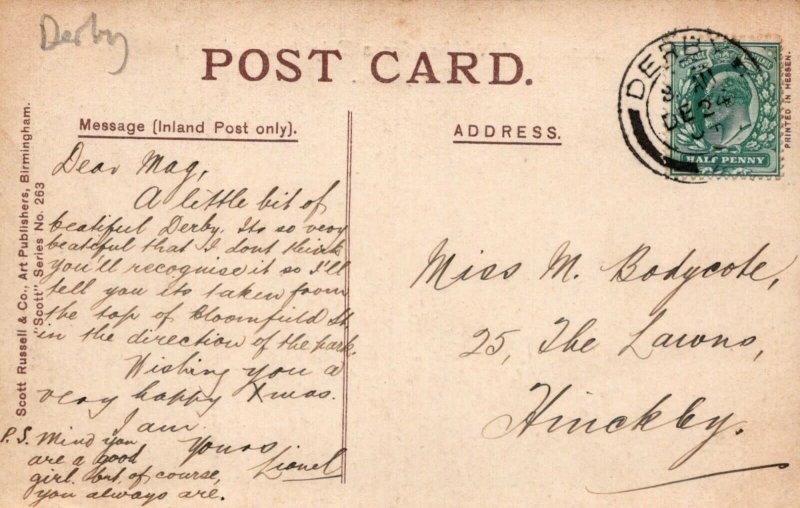 Derby
POST CARD.
Message (Inland Post only).
ADDRESS.
Scott Russell & Co., Art Publishers, Birmingham.
"Scott" Series No. 263
PRINTED IN HESSEN.
DERBY
DE 24
HALF PENNY
Dear Mag,
A little bit of
beatiful Derby. Its so very
beateful that I dont think
you'll recognise it so I'll
tell you its taken from
the top of Bloomfield St.
in the direction of the park.
Wishing you a
very happy Xmas.
I am
Yours
Lionel
P.S. Mind you
are a good
girl. but, of course,
you always are.
Miss M. Bodycote,
25, The Lawns,
Hinckley.